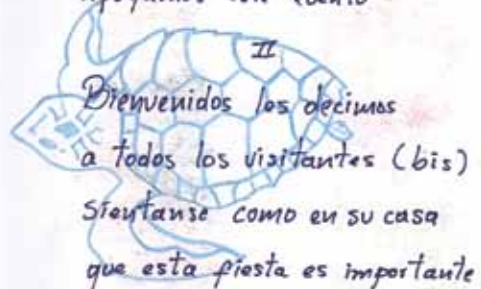 apoyamos con
II
Bienvenidos les decimos
a todos los visitantes (bis)
Sientanse como en su casa
que esta fiesta es importante